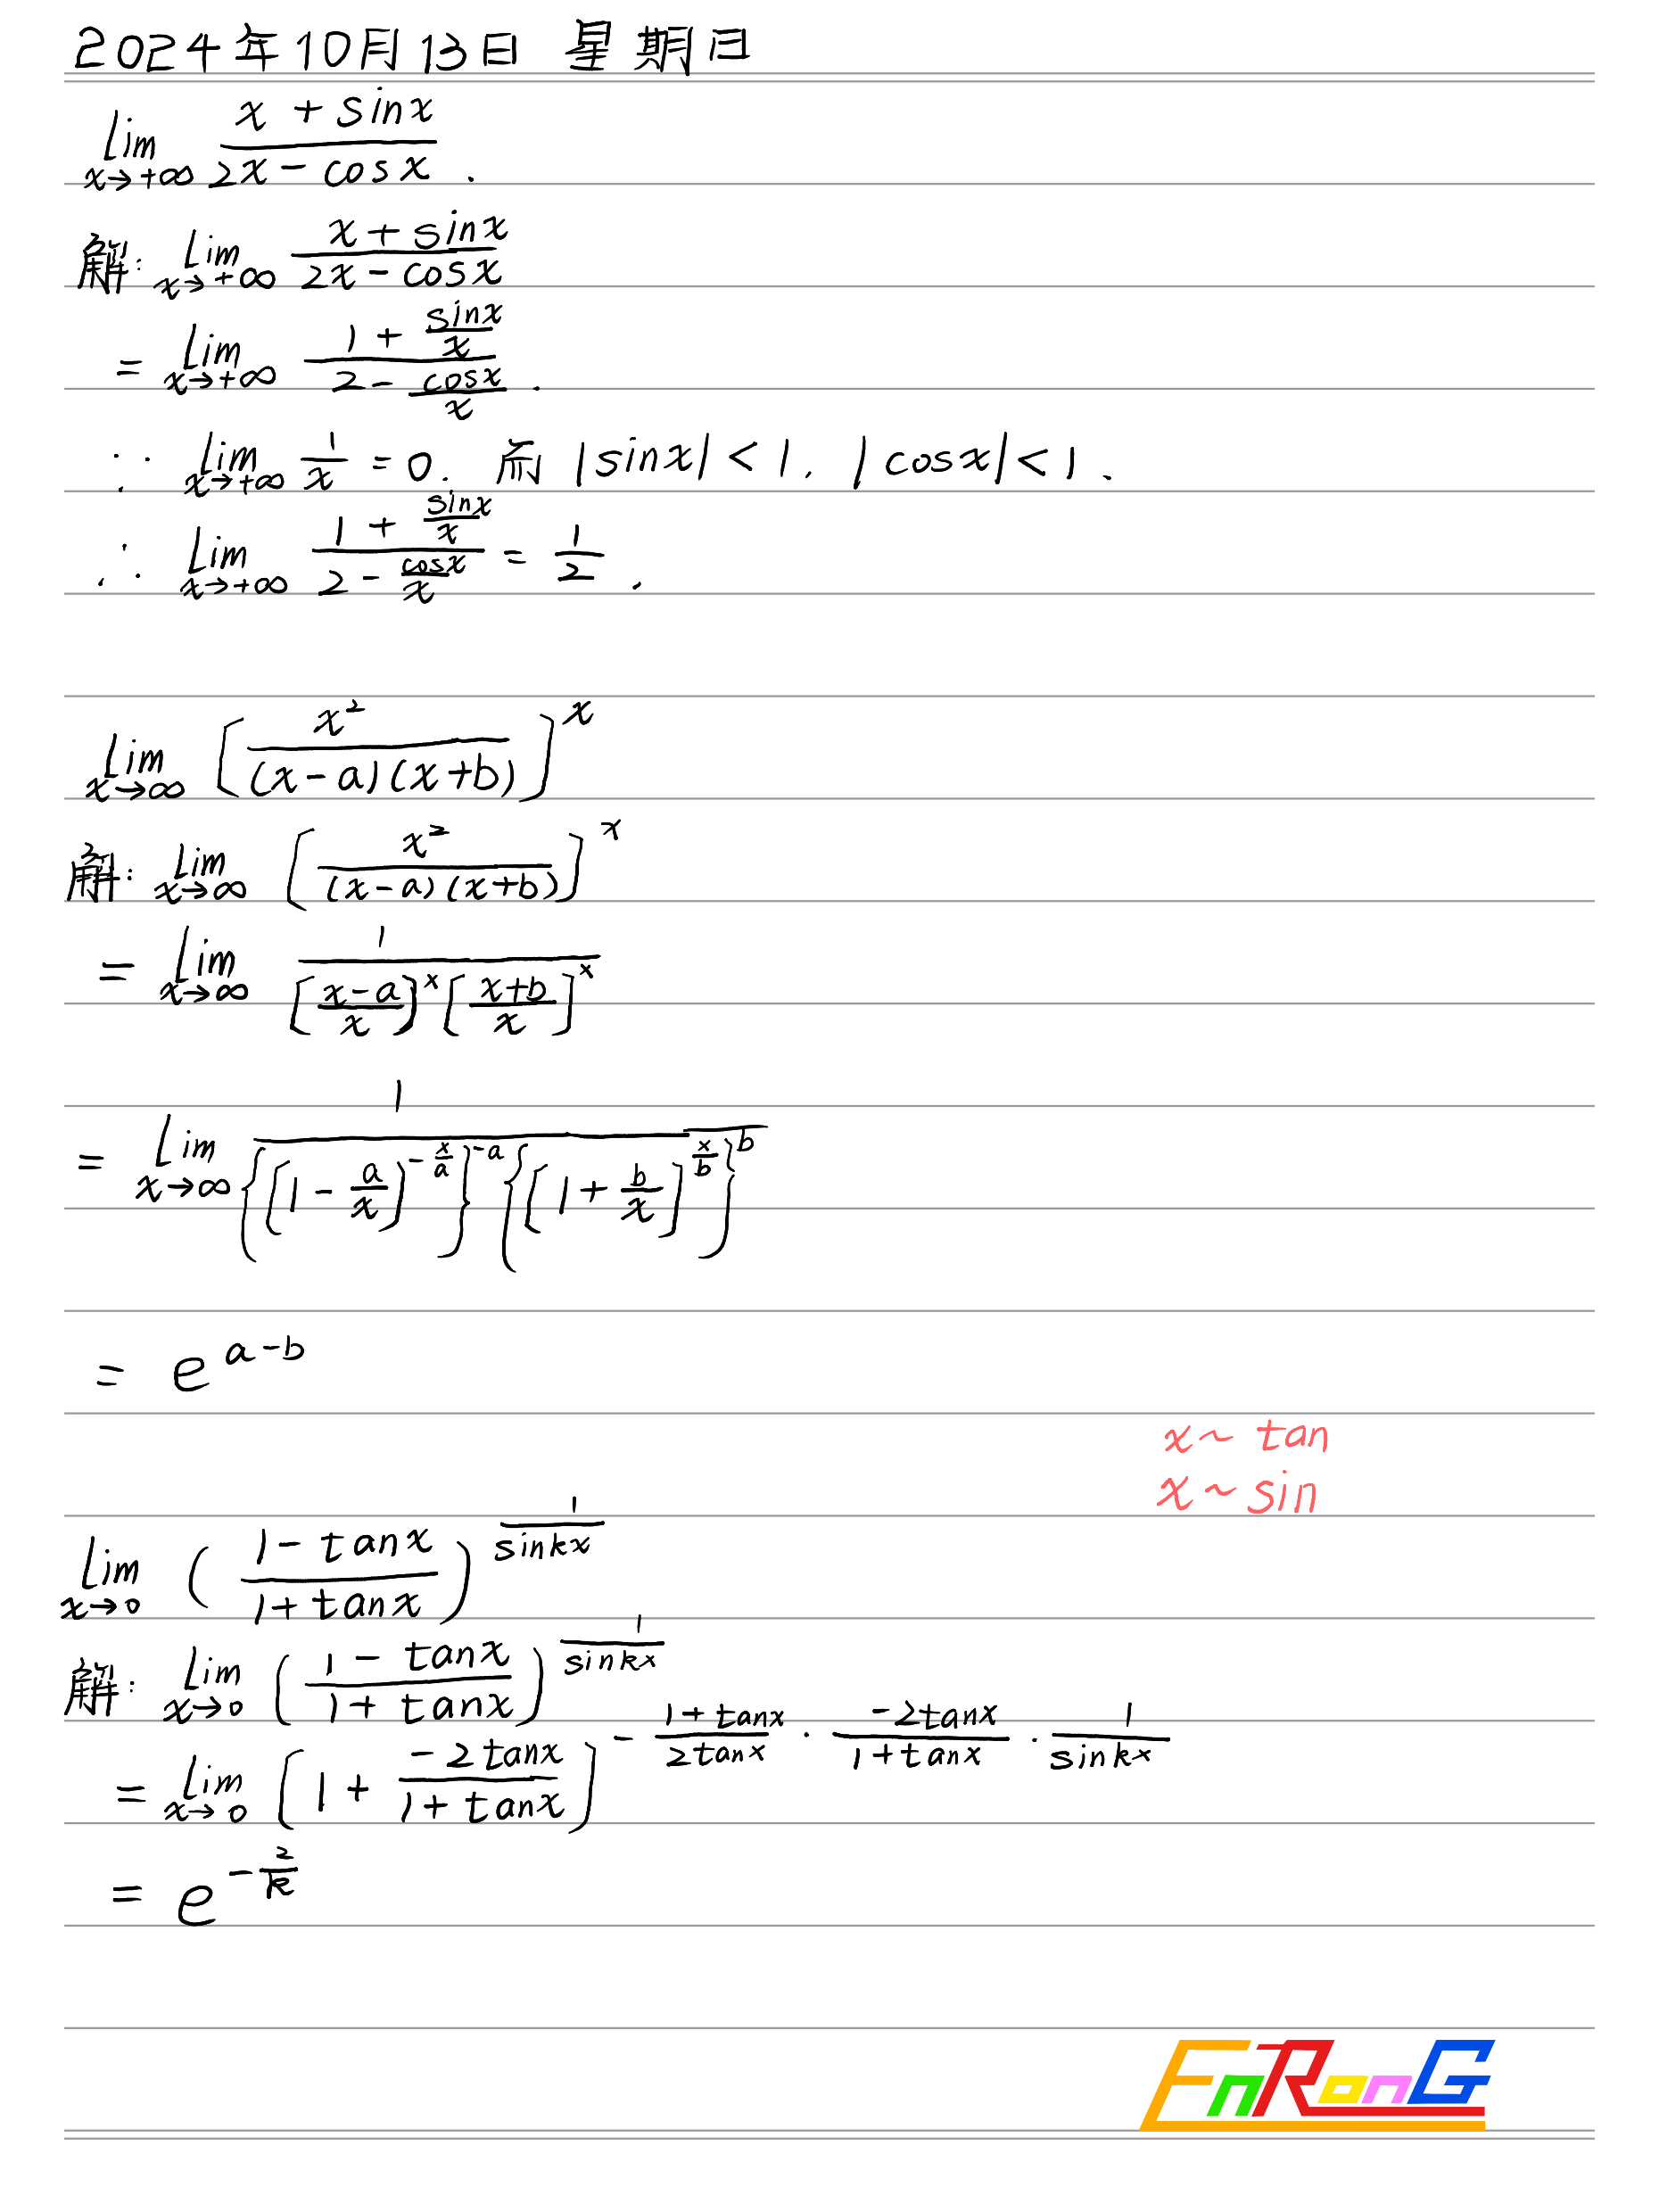 2024年10月13日 星期日
lim x→+∞ (x + sinx)/(2x − cosx) .
解: lim x→+∞ (x + sinx)/(2x − cosx)
= lim x→+∞ (1 + sinx/x)/(2 − cosx/x) .
∵ lim x→+∞ 1/x = 0. 而 |sinx| < 1, |cosx| < 1 ,
∴ lim x→+∞ (1 + sinx/x)/(2 − cosx/x) = 1/2 .
lim x→∞ [x²/((x−a)(x+b))]^x
解: lim x→∞ [x²/((x−a)(x+b))]^x
= lim x→∞ 1/([(x−a)/x]^x [(x+b)/x]^x)
= lim x→∞ 1/({[1 − a/x]^(−x/a)}^(−a) {[1 + b/x]^(x/b)}^b)
= e^(a−b)
x ~ tan
x ~ sin
lim x→0 ((1 − tanx)/(1 + tanx))^(1/sinkx)
解: lim x→0 ((1 − tanx)/(1 + tanx))^(1/sinkx)
= lim x→0 [1 + (−2tanx)/(1 + tanx)]^(−(1+tanx)/(2tanx) · (−2tanx)/(1+tanx) · 1/sinkx)
= e^(−2/k)
EnRonG